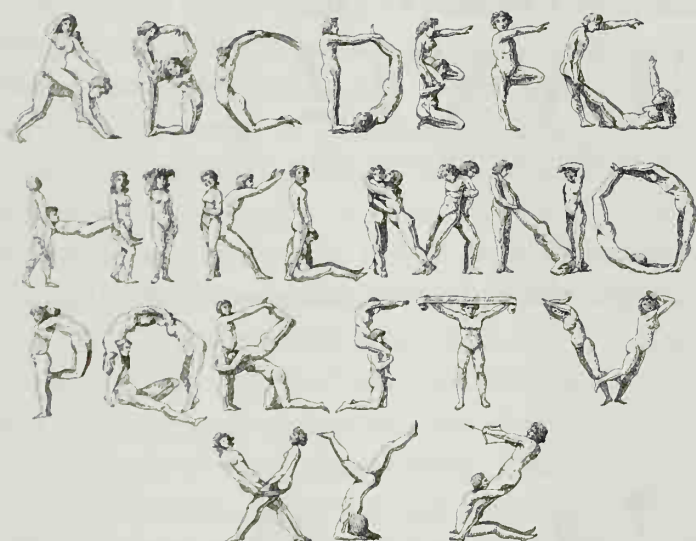 A B C D E F G
H I K L M N O
P Q R S T V
X Y Z